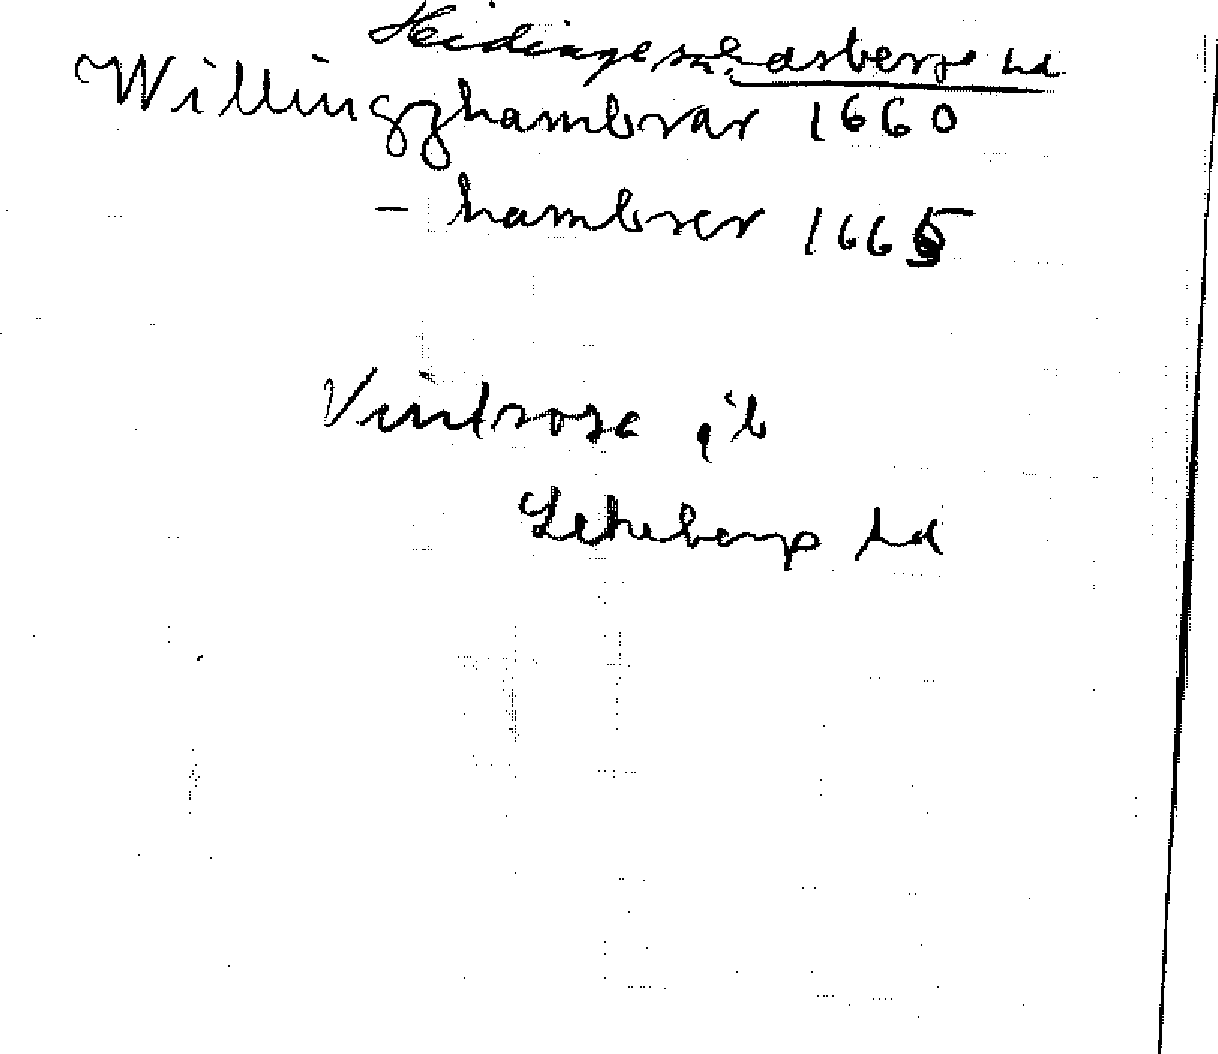 Hidinge sn. Edsbergs hd
Willingzhambrar 1660
– hambrer 1665
Vintrosa ;b
Lekebergs hd